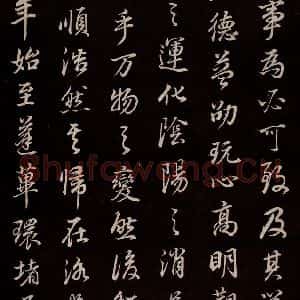 事為必可致及其學
德益劭玩心高明觀
之運化陰陽之消
乎万物之變然後
順浩然其歸在洛
年始至蓬蓽環堵
Shufawang.Cn